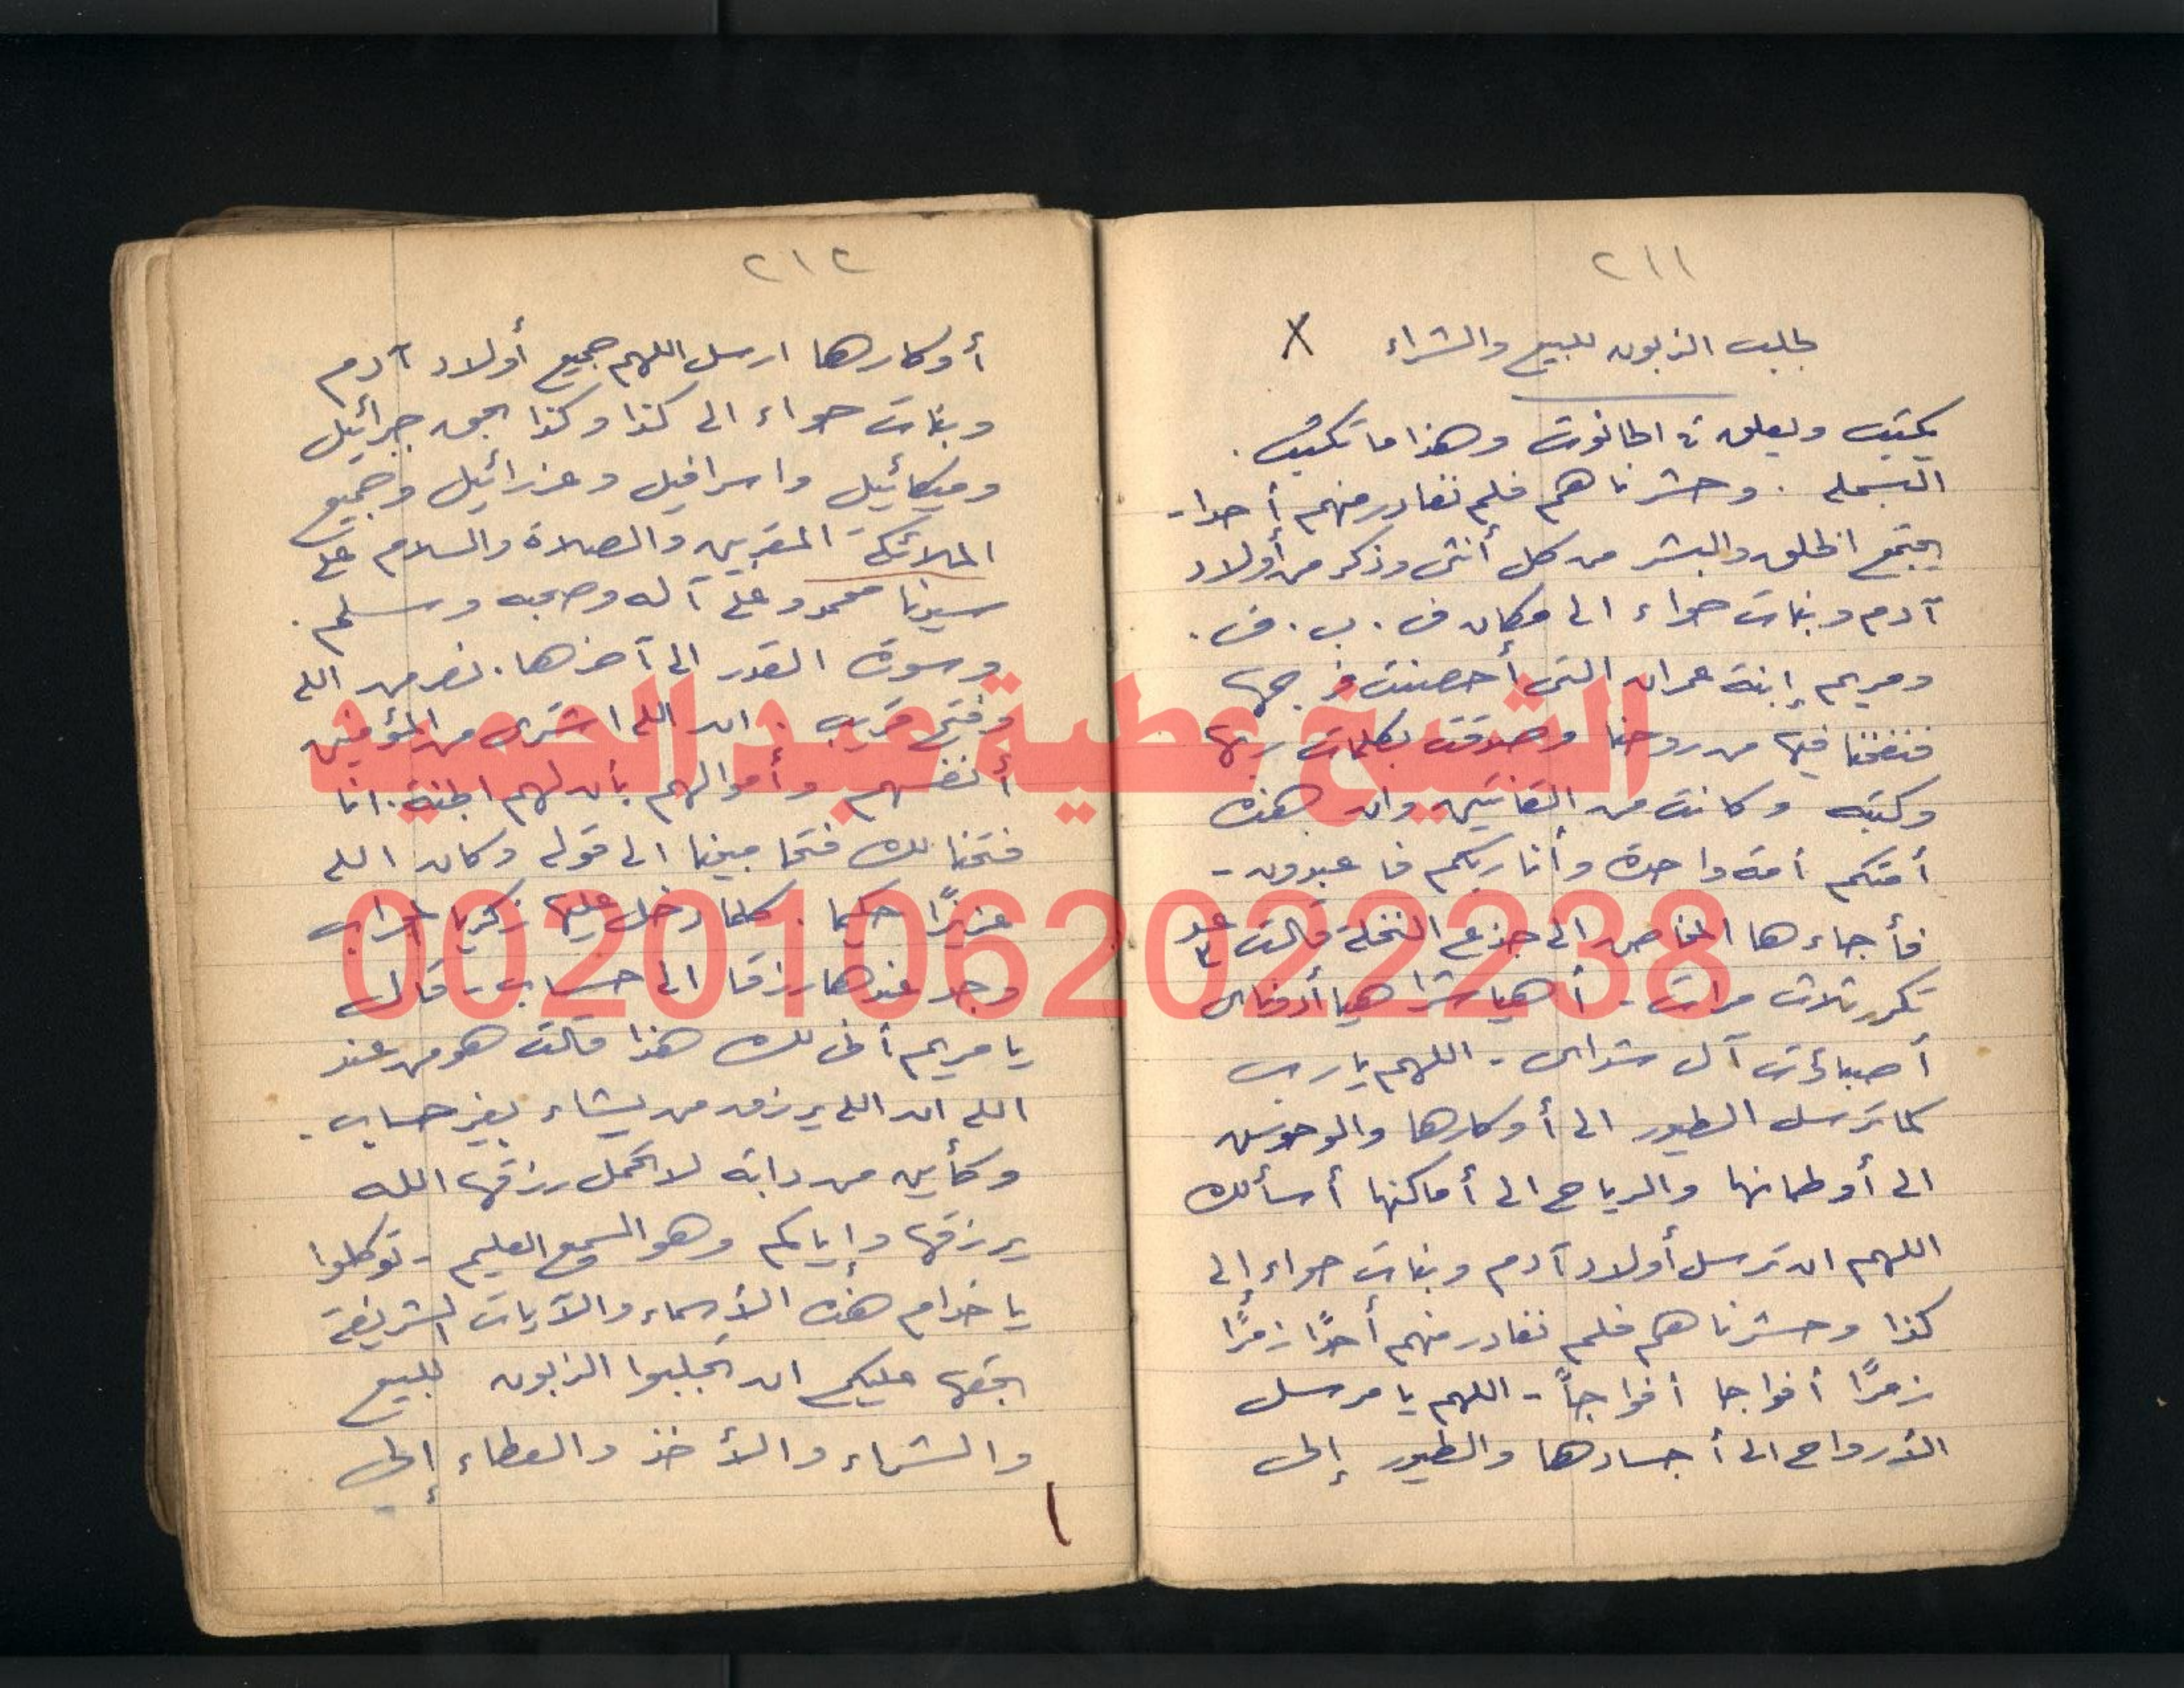 ٢١١
لجلب الزبون للبيع والشراء X
يكتب ويعلق في الحانوت وهذا ما تكتب .
البسملة . وحشرناهم فلم نغادر منهم أحدا -
يجتمع الخلق والبشر من كل أنثى وذكر من أولاد
آدم وبنات حواء الى مكان ف . ب . ف .
ومريم إبنة عمران التي أحصنت فرجها
فنفخنا فيها من روحنا وصدقت بكلمات ربها
وكتبه وكانت من القانتين وان هذه
أمتكم أمة واحدة وأنا ربكم فاعبدون -
فأجاءها المخاض الى جذع النخلة قالت
تكرر ثلاث مرات - أهيا شراهيا أدوناى
أصباؤت آل شداى - اللهم يا رب
كما ترسل الطيور الى أوكارها والوحوش
الى أوطانها والرياح الى أماكنها أسألك
اللهم ان ترسل أولاد آدم وبنات حواء إلى
كذا وحشرناهم فلم نغادر منهم أحدًا زمرًا
زمرًا أفواجا أفواجاً - اللهم يا مرسل
الأرواح الى أجسادها والطيور إلى
٢١٢
أوكارها ارسل اللهم جميع أولاد آدم
وبنات حواء الى كذا وكذا بحق جبرائيل
وميكائيل واسرافيل وعزرائيل وجميع
الملائكة المقربين والصلاة والسلام على
سيدنا محمد وعلى آله وصحبه وسلم .
وسورة القدر الى آخرها . نصر من الله
وفتح قريب . ان الله اشترى من المؤمنين
أنفسهم وأموالهم بأن لهم الجنة . انا
فتحنا لك فتحا مبينا الى قوله وكان الله
عزيزًا حكيما . كلما دخل عليها زكريا المحراب
وجد عندها رزقا الى حساب - قال
يا مريم أنى لك هذا قالت هو من عند
الله ان الله يرزق من يشاء بغير حساب .
وكأين من دابة لا تحمل رزقها الله
يرزقها وإياكم وهو السميع العليم - توكلوا
يا خدام هذه الأسماء والآيات الشريفة
بحقها عليكم ان تجلبوا الزبون للبيع
والشراء والأخذ والعطاء إلى
الشيخ عطية عبد الحميد
00201062022238